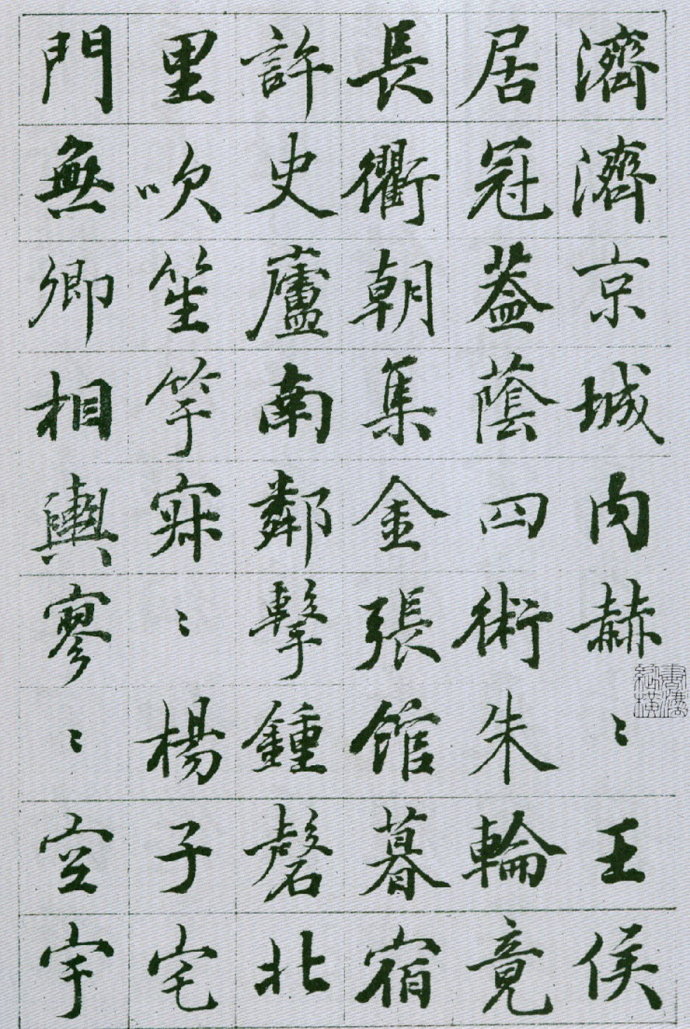 濟濟京城内赫〻王侯
居冠蓋蔭四術朱輪竟
長衢朝集金張館暮宿
許史廬南鄰擊鍾磬北
里吹笙竽寂〻楊子宅
門無卿相輿寥〻空宇